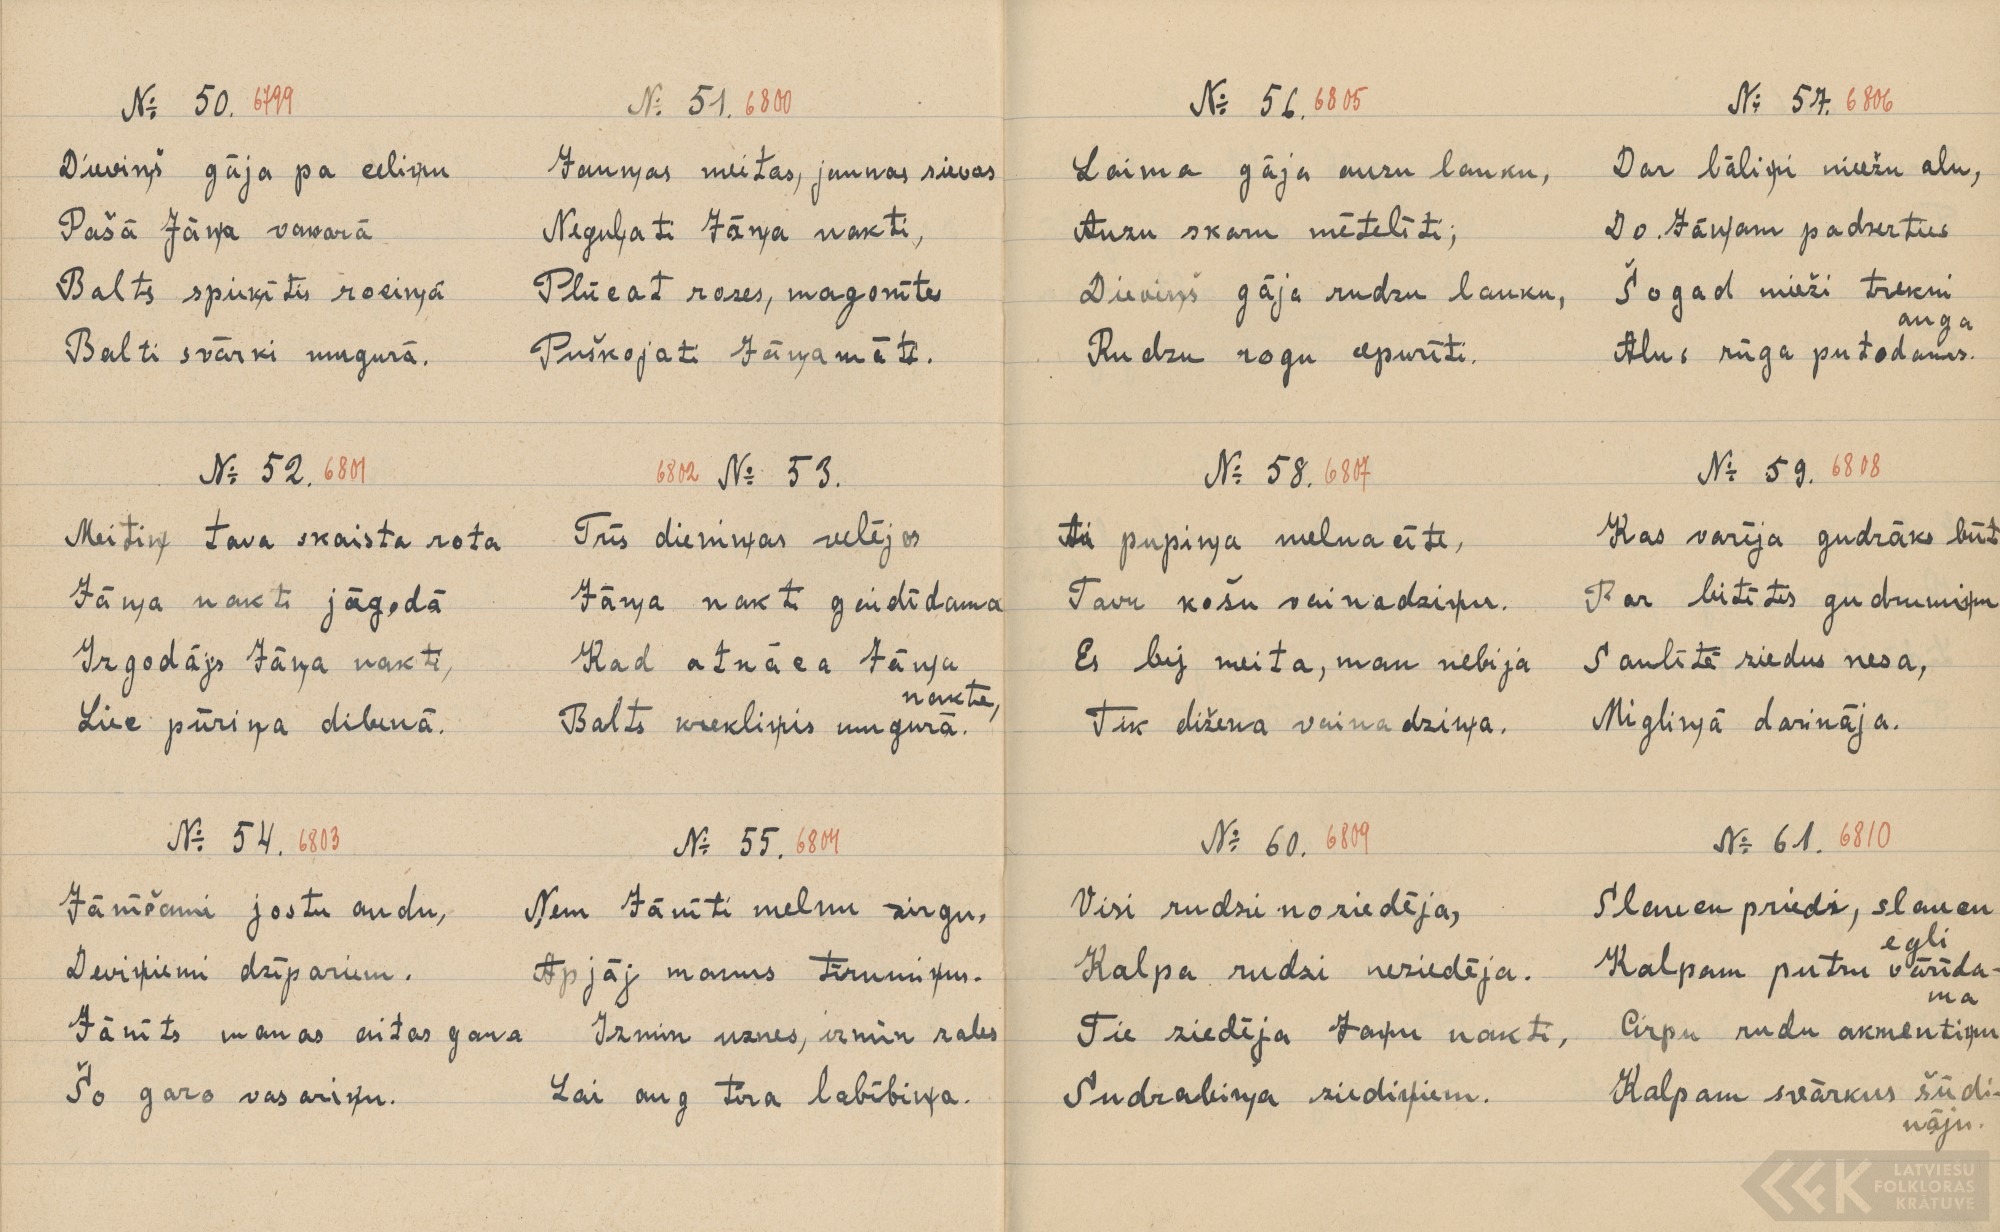 № 50. 6799
Dieviņš gāja pa celiņu
Pašā Jāņa vakarā
Balts spieķītis rociņā
Balti svārki mugurā.
№ 51. 6800
Jaunas meitas, jaunas sievas
Neguļati Jāņa nakti,
Plūcat rozes, magonītes
Puškojati Jāņa māti.
№ 52. 6801
Meitiņ tava skaista rota
Jāņa nakti jāgodā
Izgodājs Jāņa nakti,
Liec pūriņa dibenā.
6802 № 53.
Trīs dieniņas velējos
Jāņa nakti gaidīdama
Kad atnāca Jāņa
nakte,
Balts krekliņis mugurā.
№ 54. 6803
Jānīšami jostu audu,
Deviņiemi dzīpariem.
Jānīts manas aitas gana
Šo garo vasariņu.
№ 55. 6804
Ņem Jānīti melnu zirgu,
Apjāj manus tīrumiņus.
Izmin uznes, izmin zales
Lai aug tīra labībiņa.
№ 56. 6805
Laima gāja auzu lauku,
Auzu skaru mētelīti;
Dieviņš gāja rudzu lauku,
Rudzu rogu cepurīti.
№ 57. 6806
Dar bāliņi miežu alu,
Do Jāņam padzerties
Šogad mieži trekni
auga
Alus rūga putodams.
№ 58. 6807
Ai pupiņa melnacīte,
Tavu košu vainadziņu.
Es bij meita, man nebija
Tik dižena vainadziņa.
№ 59. 6808
Kas varēja gudrāks būt
Par bitītes gudrumiņu
Saulītē ziedus nesa,
Migliņā darināja.
№ 60. 6809
Visi rudzi noziedēja,
Kalpa rudzi neziedēja.
Tie ziedēja Jaņu nakti,
Sudrabiņa ziediņiem.
№ 61. 6810
Slaucu priedi, slaucu
egli
Kalpam putru vārīda-
ma
Cirpu rudu akmentiņu
Kalpam svārkus šūdi-
nāju.
LATVIEŠU
FOLKLORAS
KRĀTUVE